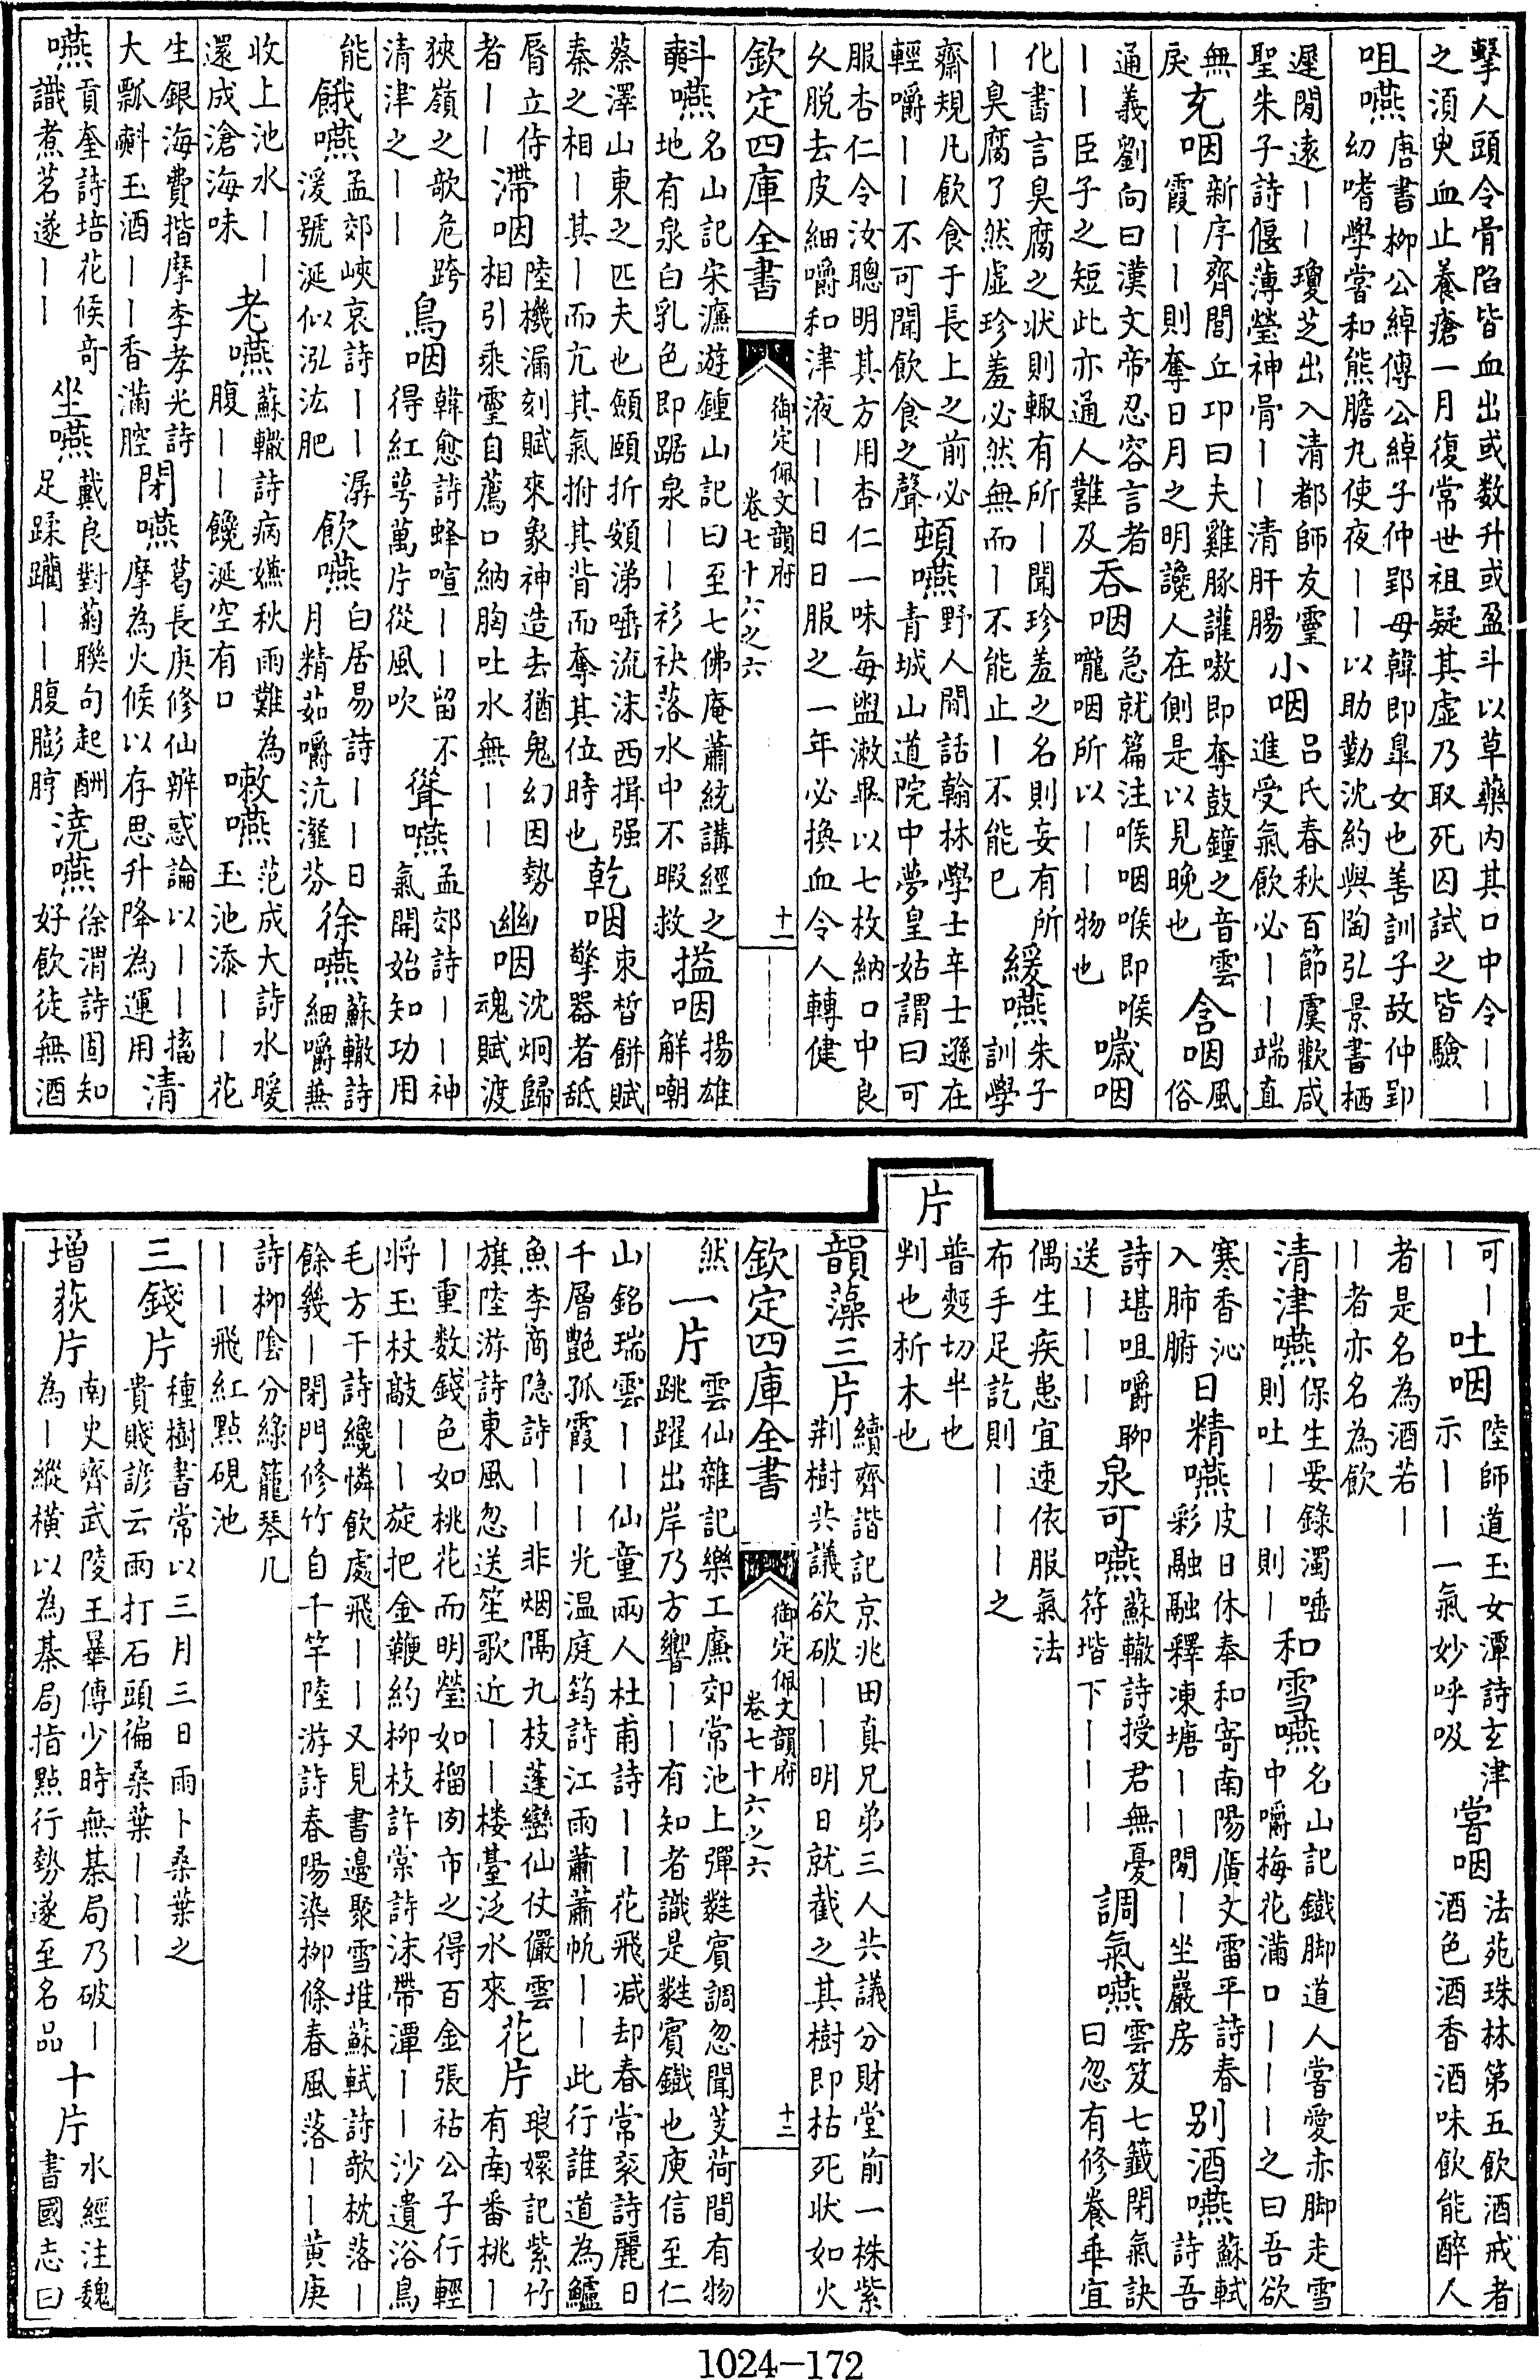 擊人頭令骨陷皆血出或数升或盈斗以草藥内其口中令｜｜
之須臾血止養瘡一月復常世祖疑其虛乃取死囚試之皆驗
咀嚥
唐書柳公綽傳公綽子仲郢母韓即臯女也善訓子故仲郢
幼嗜學嘗和熊膽丸使夜｜｜以助勤沈約與陶弘景書栖
遲閒遠｜｜瓊芝出入清都師友靈
聖朱子詩偃薄瑩神骨｜｜清肝腸
小咽
呂氏春秋百節虞歡咸
進受氣飲必｜｜端直
無
戾
充咽
新序齊閭丘卭曰夫雞豚讙嗷即奪鼓鐘之音雲
霞｜｜則奪日月之明讒人在側是以見晚也
含咽
風
俗
通義劉向曰漢文帝忍容言者
｜｜臣子之短此亦通人難及
吞咽
急就篇注喉咽喉即喉
嚨咽所以｜｜物也
噦咽
化書言臭腐之状則輙有所｜聞珍羞之名則妄有所
｜臭腐了然虛珍羞必然無而｜不能止｜不能已
緩嚥
朱子
訓學
齋規凡飲食于長上之前必
輕嚼｜｜不可聞飲食之聲
頓嚥
野人閒話翰林學士辛士遜在
青城山道院中夢皇姑謂曰可
服杏仁令汝聰明其方用杏仁一味每盥漱畢以七枚納口中良
久脱去皮細嚼和津液｜｜日日服之一年必換血令人轉健
欽定四庫全書
御定佩文韻府
卷七十六之六
十一
㪷嚥
名山記宋濂遊鍾山記曰至七佛庵蕭統講經之
地有泉白乳色即踞泉｜｜衫袂落水中不暇救
搤咽
揚雄
解嘲
蔡澤山東之匹夫也顩頤折頞涕唾流沫西揖强
秦之相｜其｜而亢其氣拊其背而奪其位時也
乾咽
束晳餅賦
擎器者䑛
脣立侍
者｜｜
滯咽
陸機漏刻賦來象神造去猶鬼幻因勢
相引乘靈自薦口納胸吐水無｜｜
幽咽
沈炯歸
魂賦渡
狹嶺之欹危跨
清津之｜｜
鳥咽
韓愈詩蜂喧｜｜留不
得紅萼萬片從風吹
聳嚥
孟郊詩｜｜神
氣開始知功用
能
餓嚥
孟郊峽哀詩｜｜潺
湲號涎似泓浤肥
飲嚥
白居易詩｜｜日
月精茹嚼沆瀣芬
徐嚥
蘇轍詩
細嚼兼
收上池水｜｜
還成滄海味
老嚥
蘇轍詩病嫌秋雨難為
腹｜｜饞涎空有口
嗽嚥
范成大詩水暖
玉池添｜｜花
生銀海費揩摩李孝光詩
大瓢㪷玉酒｜｜香滿腔
閉嚥
葛長庚修仙辨惑論以｜｜搐
摩為火候以存思升降為運用
清
嚥
貢奎詩培花候奇
識煮茗遂｜｜
坐嚥
戴良對菊聯句起酬
足蹂躪｜｜腹膨脝
澆嚥
徐渭詩固知
好飲徒無酒
可｜
｜
吐咽
陸師道玉女潭詩玄津
示｜｜一氣妙呼吸
嘗咽
法苑珠林第五飲酒戒者
酒色酒香酒味飲能醉人
者是名為酒若｜
｜者亦名為飲
清津嚥
保生要錄濁唾
則吐｜｜｜則｜
和雪嚥
名山記鐵脚道人嘗愛赤脚走雪
中嚼梅花滿口｜｜｜之曰吾欲
寒香沁
入肺腑
日精嚥
皮日休奉和寄南陽廣文雷平詩春
彩融融釋凍塘｜｜閒｜坐巖房
别酒嚥
蘇軾
詩吾
詩堪咀嚼聊
送｜｜｜
泉可嚥
蘇轍詩授君無憂
符堦下｜｜｜
調氣嚥
雲笈七籤閉氣訣
曰忽有修養乖宜
偶生疾患宜速依服氣法
布手足訖則｜｜｜之
片
普麪切半也
判也析木也
韻藻三片
續齊諧記京兆田真兄弟三人共議分財堂前一株紫
荆樹共議欲破｜｜明日就截之其樹即枯死状如火
欽定四庫全書
御定佩文韻府
卷七十六之六
十二
然
一片
雲仙雜記樂工廉郊常池上彈蕤賓調忽聞芰荷間有物
跳躍出岸乃方響｜｜有知者識是蕤賓鐵也庾信至仁
山銘瑞雲｜｜仙童兩人杜甫詩｜｜花飛减却春常衮詩麗日
千層艷孤霞｜｜光温庭筠詩江雨蕭蕭帆｜｜此行誰道為鱸
魚李商隐詩｜｜非烟隔九枝蓬巒仙仗儼雲
旗陸游詩東風忽送笙歌近｜｜樓臺泛水來
花片
琅嬛記紫竹
有南番桃｜
｜重数錢色如桃花而明瑩如榴肉市之得百金張祜公子行輕
将玉杖敲｜｜旋把金鞭約柳枝許棠詩沫帶潭｜｜沙遺浴鳥
毛方干詩纔憐飲處飛｜｜又見書邊聚雪堆蘇軾詩欹枕落｜
餘幾｜閉門修竹自千竿陸游詩春陽染柳條春風落｜｜黄庚
詩柳陰分綠籠琴几
｜｜飛紅點硯池
三錢片
種樹書常以三月三日雨卜桑葉之
貴賤諺云雨打石頭徧桑葉｜｜｜
增荻片
南史齊武陵王曅傳少時無棊局乃破｜
為｜縱横以為棊局指點行勢遂至名品
十片
水經注魏
書國志曰
1024-172